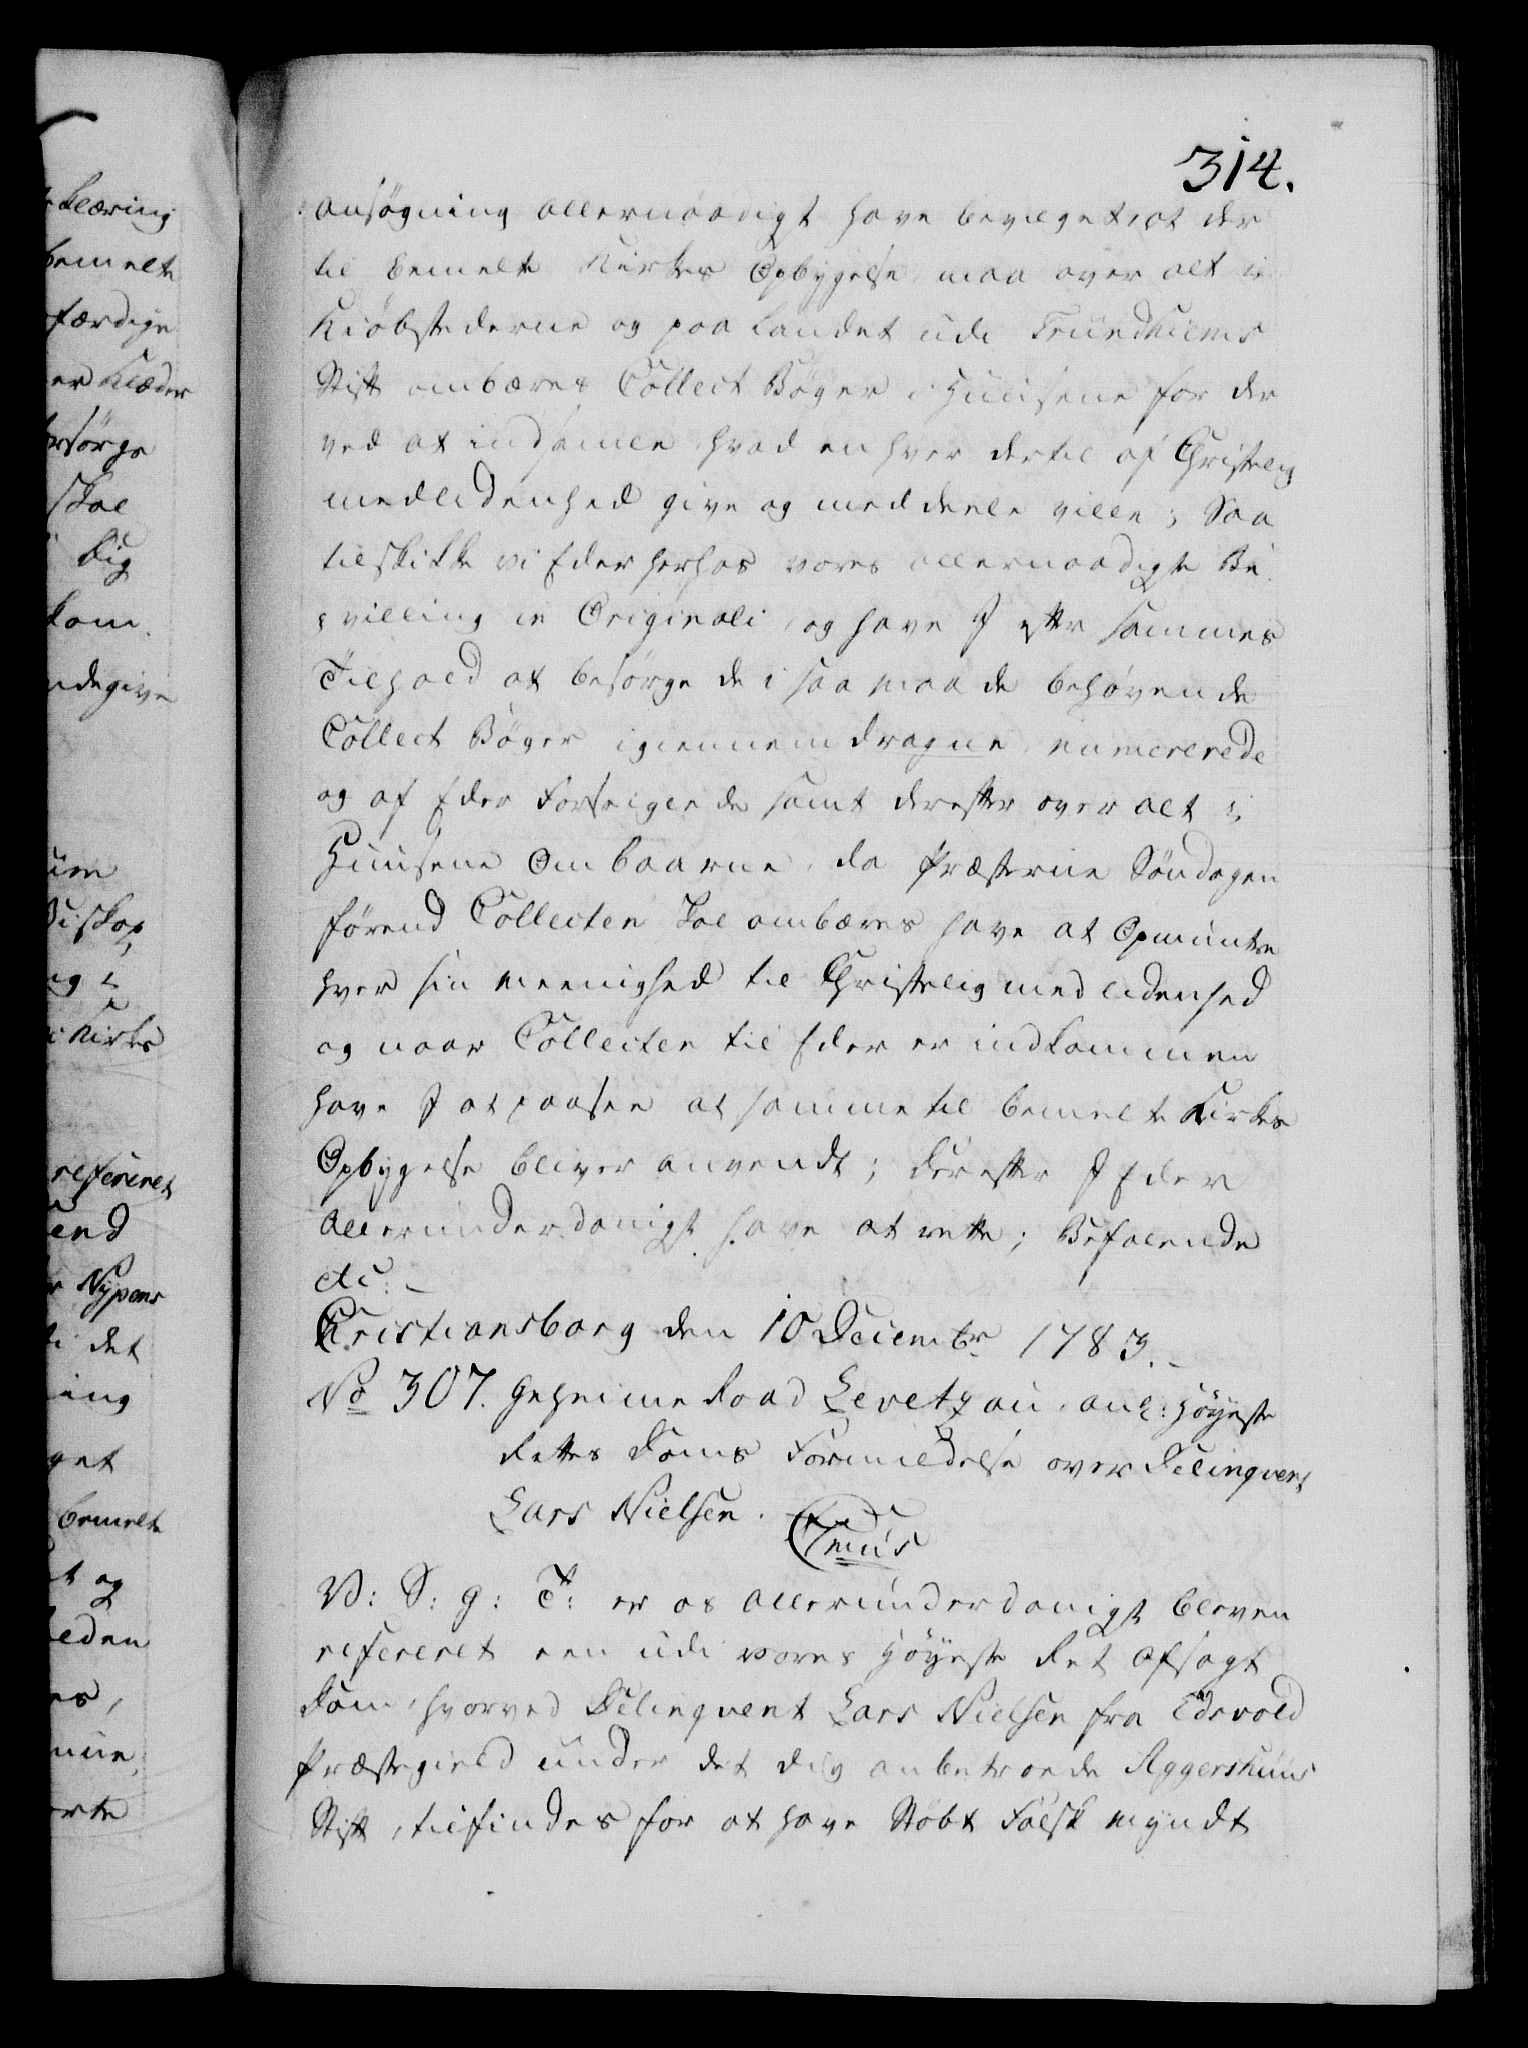 314.
ansøgning allernaadigt have bevilget, at der
til bemelte Kirkes Opbygelse maa over alt i
Kiøbstederne og paa Landet udi Trundhiems
Stift ombæres Collect Bøger i Huusene for der
ved at indsamle hvad en hver dertil af Christelig
medlidenhed give og meddeele ville; Saa
tilskikke vi Eder herhos vores allernaadigste Be¬
villing in Originali, og have I efter sammes
Tilhold at besørge de i saa maade behøvende
Collect Bøger igiennemdragne, numererede
og af Eder Forseiglede samt derefter over alt i
Huusene Ombaarne, da Præsterne Søndagen
førend Collecten skal ombæres have at Opmuntre
hver sin Meenighed til Christelig medlidenhed
og naar Collecten til Eder er indkommen
have I at paasee at samme til bemelte Kirkes
Opbygelse bliver anvendt; Derefter I Eder
allerunderdanigst have at rette; Befalende
etc: –
Christiansborg den 10 Decembr 1783. –
No 307. Geheime Raad Levetzau, anl: Høyeste
Rettes Doms Formildelse over Delinqvent
Lars Nielsen.
V: S: g: T: er os allerunderdanigst bleven
refereret een udi vores Høyeste Ret afsagt
Dom, hvorved Delinqvent Lars Nielsen fra Edsvold
Præstegield under det dig anbetroede Aggershuus
Stift, tilfindes for at have Støbt Falsk Myndt